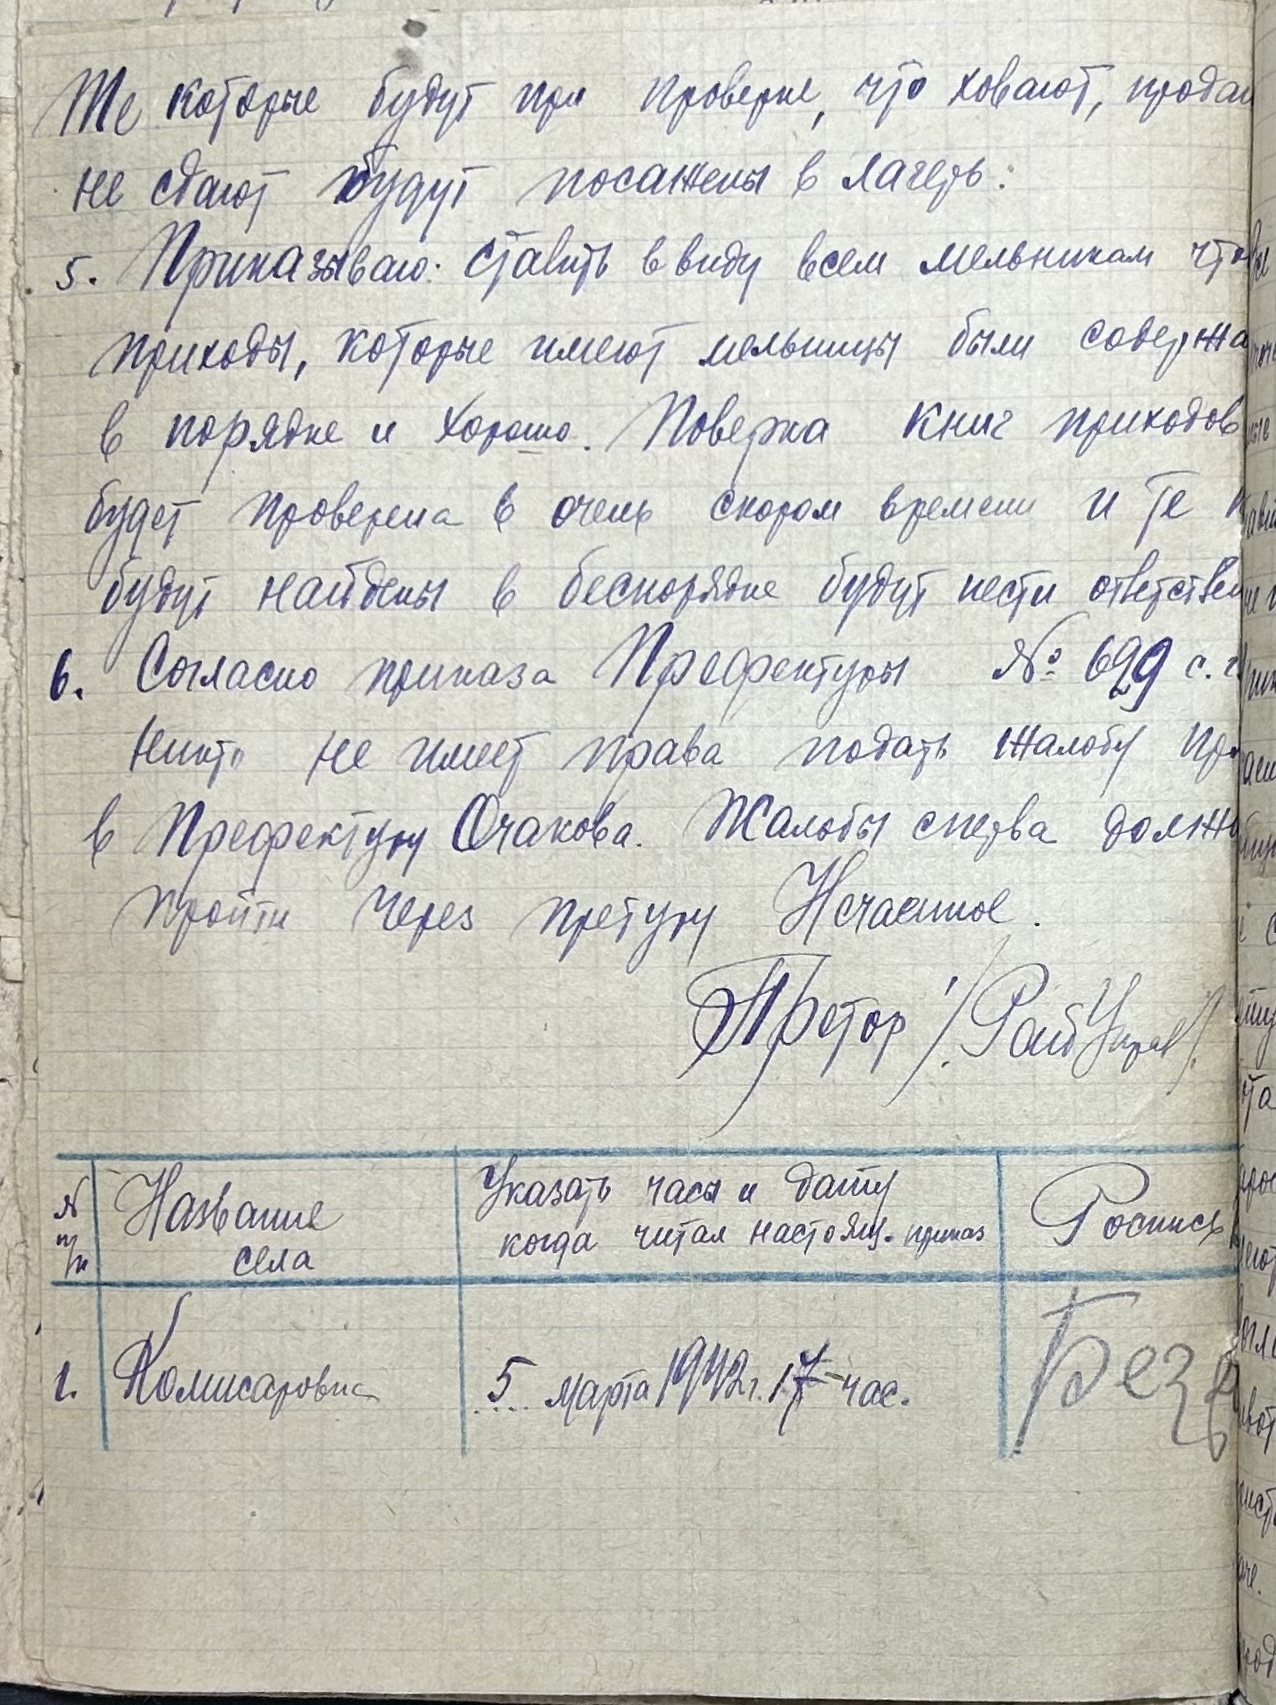 Те которые будут при проверке, что ховают, продаю
не сдают будут посажены в лагерь.
5. Приказываю: ставить в виду всем мельникам что
приходы, которые имеют мельницы были содержа
в порядке и хорошо. Поверка книг приходов
будет проверена в очень скором времени и те к
будут найдены в беспорядке будут нести ответствен
6. Согласно приказа Префектуры № 699 с. г.
никто не имеет права подать жалобу пря
в Префектуру Очакова. Жалобы сперва должн
пройти через претуру
Претор /РайУправ/.
№ п/п
Название села
Указать часы и дату
когда читал настоящ. приказ
Роспись
1. Комисаровка
5 марта 1942 г. 17 час.